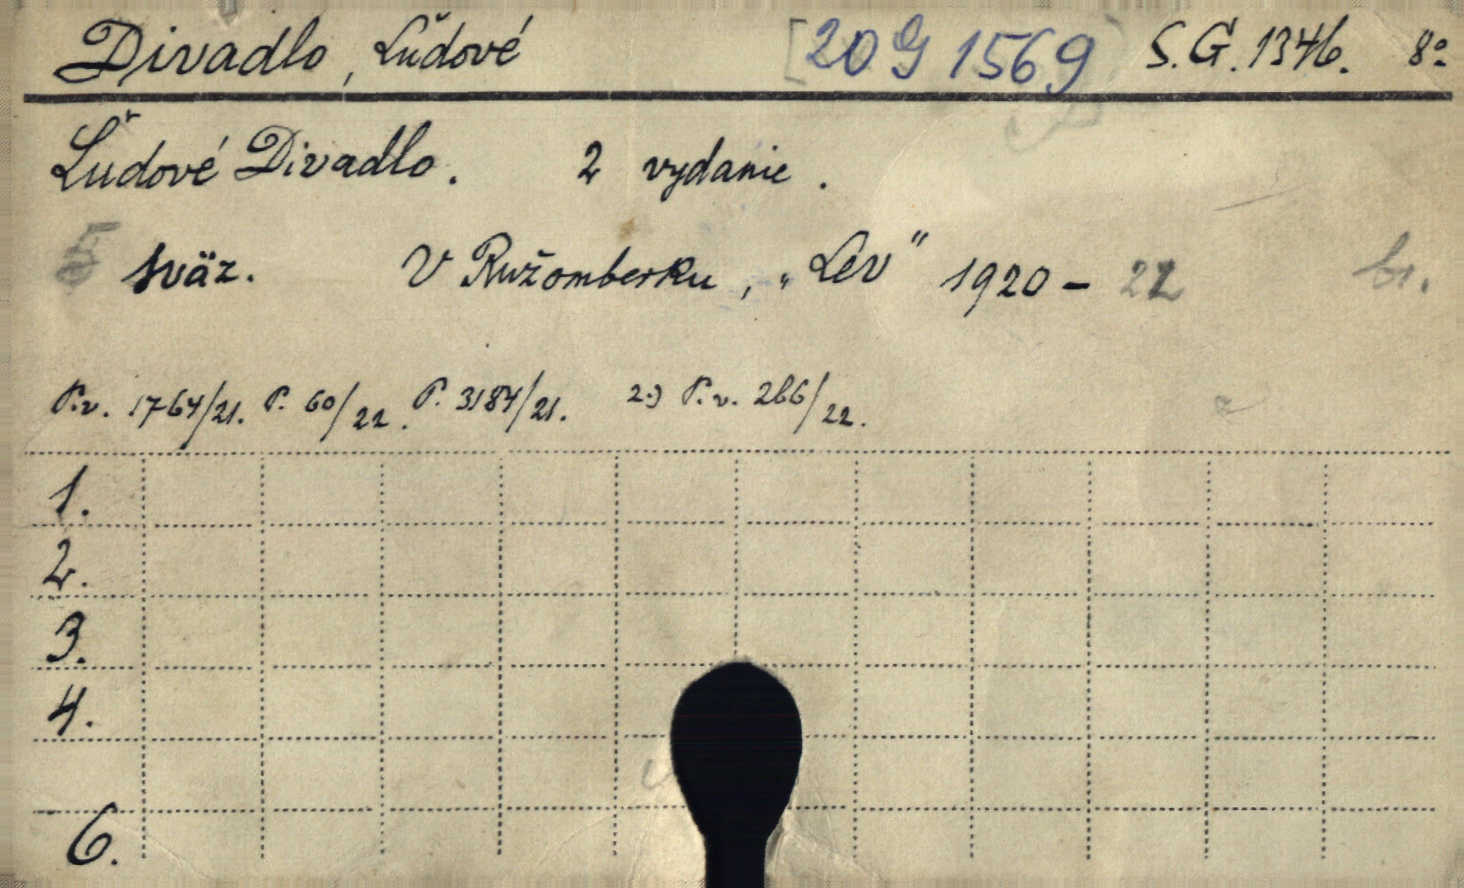 Divadlo, Ľudové [20 G 1569] S.G. 1346. 8º
Ľudové Divadlo. 2 vydanie.
5 sväz. V Ružomberku, „Lev" 1920 - 22 br.
P.v. 1764/21. P. 60/22. P. 3184/21. 2.) P.v. 266/22.
1.
2.
3.
4.
6.